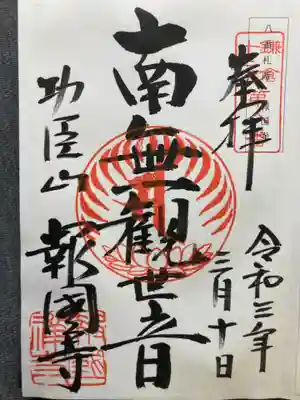 奉拝
令和三年
三月十日
南無観世音
功臣山
報國寺